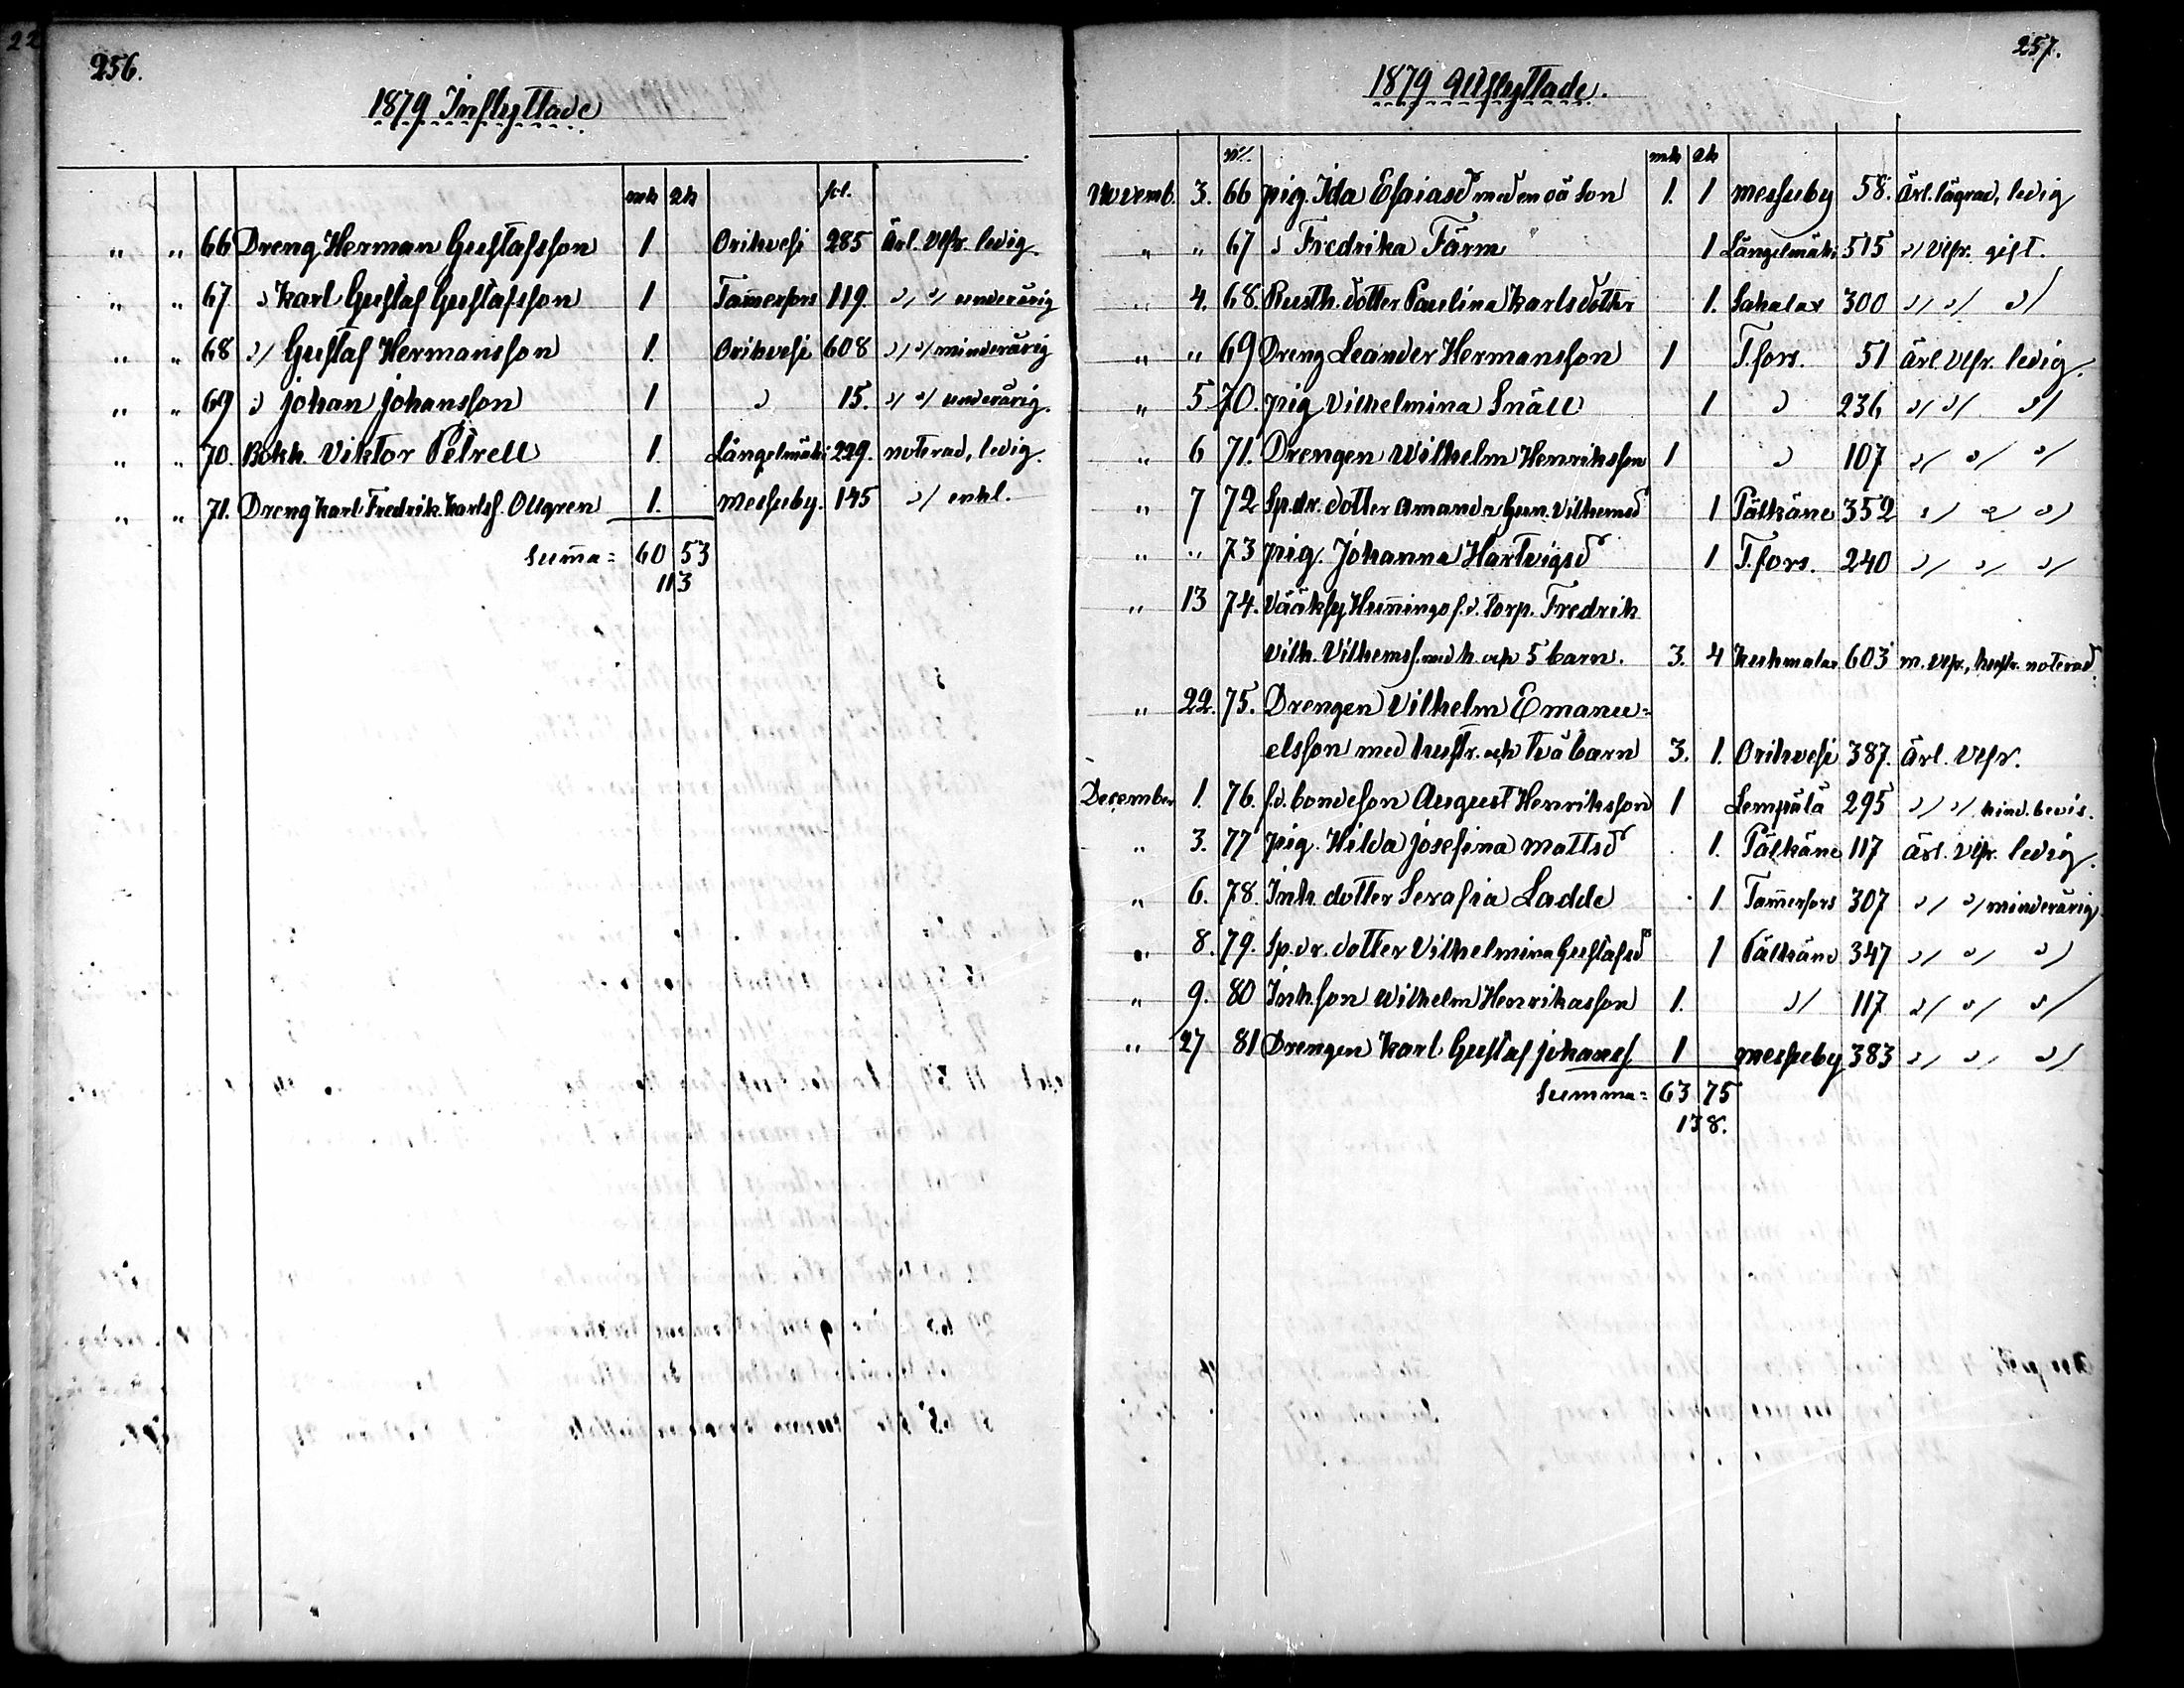 22
256.
1879 Inflyttade
mk qk fol.
" " 66 Dreng Herman Gustafsson 1 Orihvesi 285 Ärl. Vlfr. ledig.
" " 67. " Karl Gustaf Gustafsson 1 Tam̄erfors 119. " " underårig
" " 68 " Gustaf Hermansson 1. Orihvesi 608 " " minderårig
" " 69 " Johan Johansson 1 " 15. " " underårig.
" " 70. Bokh. Viktor Petrell 1. Längelmäki 229. noterad, ledig.
" " 71. Dreng Karl Fredrik Karlss. Ollgren 1. Messuby. 145 " enkl.
Sum̄a = 60 53
113
257.
1879 Utflyttade.
No. mk qk
Novemb. 3. 66 pig. Ida Esaiasd med en oä son 1. 1 Messuby 58. Ärl. lägrad, ledig
" " 67 " Fredrika Färm 1 Längelmäki 515 " Vlfr. gift.
" 4. 68. Rusth. dotter Paulina Karlsdotter 1. Sahalax 300 " " "
" " 69 Dreng Leander Hermansson 1 T.fors. 51 Ärl. Vlfr. ledig.
" 5 70. pig Vilhelmina Snäll 1 " 236 " " "
" 6 71. Drengen Wilhelm Henriksson 1 " 107 " " "
" 7 72 Sp.dr. dotter Amanda Gun. Vilhemsd 1 Pälkäne 352 " " "
" " 73 pig. Johanna Hartvigsd 1 T.fors. 240 " " "
" 13 74. Vääksy Hum̄ingo f.d. torp. Fredrik
Vilh. Vilhemss. med h. och 5 barn. 3. 4 Kuhmalax 603 m. Vlfr., hustr. noterad.
" 22. 75. Drengen Vilhelm Emanu=
elsson med hustr. och två barn 3. 1. Orihvesi 387. Ärl. Vlfr.
December 1. 76. f.d. bondeson August Henriksson 1 Lempälä 295 " " hind.bevis.
" 3. 77 pig. Hilda Josefina Mattsd 1. Pälkäne 117 Ärl. Vlfr. ledig.
" 6. 78. Inh. dotter Serafia Ladde 1 Tam̄erfors 307 " " minderårig
" 8. 79. Sp.dr. dotter Vilhelmina Gustafsd 1 Pälkäne 347 " " "
" 9. 80 Inh.son Wilhelm Henrikasson 1. " 117 " " "
" 27 81 Drengen Karl Gustaf Johanss 1 Messuby 383 " " "
Summa = 63 75
138.